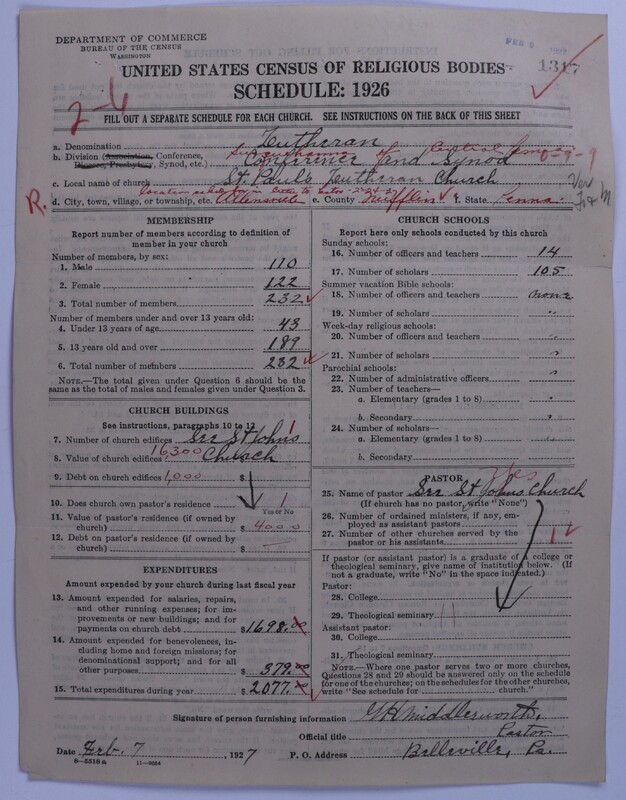 DEPARTMENT OF COMMERCE
BUREAU OF THE CENSUS
WASHINGTON
FEB 9 1927
UNITED STATES CENSUS OF RELIGIOUS BODIES
1317
SCHEDULE: 1926
2-6
FILL OUT A SEPARATE SCHEDULE FOR EACH CHURCH. SEE INSTRUCTIONS ON THE BACK OF THIS SHEET
a. Denomination Lutheran
b. Division (Association, Conference, Diocese, Presbytery, Synod, etc.) Conference and Synod
0-9-9
c. Local name of church St. Pauls Lutheran Church
R.
d. City, town, village, or township, etc. Allensville e. County Mifflin f. State Penna.
MEMBERSHIP
Report number of members according to definition of member in your church
Number of members, by sex:
1. Male 110
2. Female 122
3. Total number of members 232
Number of members under and over 13 years old:
4. Under 13 years of age 43
5. 13 years old and over 189
6. Total number of members 232
NOTE.—The total given under Question 6 should be the same as the total of males and females given under Question 3.
CHURCH BUILDINGS
See instructions, paragraphs 10 to 12
7. Number of church edifices See St Johns 1
8. Value of church edifices 16300 Church
9. Debt on church edifices 1,000 $
10. Does church own pastor's residence 1
Yes or No
11. Value of pastor's residence (if owned by church) $ 4000
12. Debt on pastor's residence (if owned by church) $
EXPENDITURES
Amount expended by your church during last fiscal year
13. Amount expended for salaries, repairs, and other running expenses; for improvements or new buildings; and for payments on church debt $1698.00
14. Amount expended for benevolences, including home and foreign missions; for denominational support; and for all other purposes $ 379.00
15. Total expenditures during year $2077.00
CHURCH SCHOOLS
Report here only schools conducted by this church
Sunday schools:
16. Number of officers and teachers 14
17. Number of scholars 105
Summer vacation Bible schools:
18. Number of officers and teachers none
19. Number of scholars "
Week-day religious schools:
20. Number of officers and teachers "
21. Number of scholars "
Parochial schools:
22. Number of administrative officers "
23. Number of teachers—
a. Elementary (grades 1 to 8) "
b. Secondary "
24. Number of scholars—
a. Elementary (grades 1 to 8)
b. Secondary
PASTOR
25. Name of pastor See St Johns Church
(If church has no pastor, write "None")
26. Number of ordained ministers, if any, employed as assistant pastors
27. Number of other churches served by the pastor or his assistants 1
If pastor (or assistant pastor) is a graduate of a college or theological seminary, give name of institution below. (If not a graduate, write "No" in the space indicated.)
Pastor:
28. College
29. Theological seminary
Assistant pastor:
30. College
31. Theological seminary
NOTE.—Where one pastor serves two or more churches, Questions 28 and 29 should be answered only on the schedule for one of the churches; on the schedules for the other churches, write "See schedule for church."
Signature of person furnishing information Middlesworth,
Official title Pastor
Date Feb. 7, 1927
P. O. Address Belleville, Pa.
8-5518a 11-9064